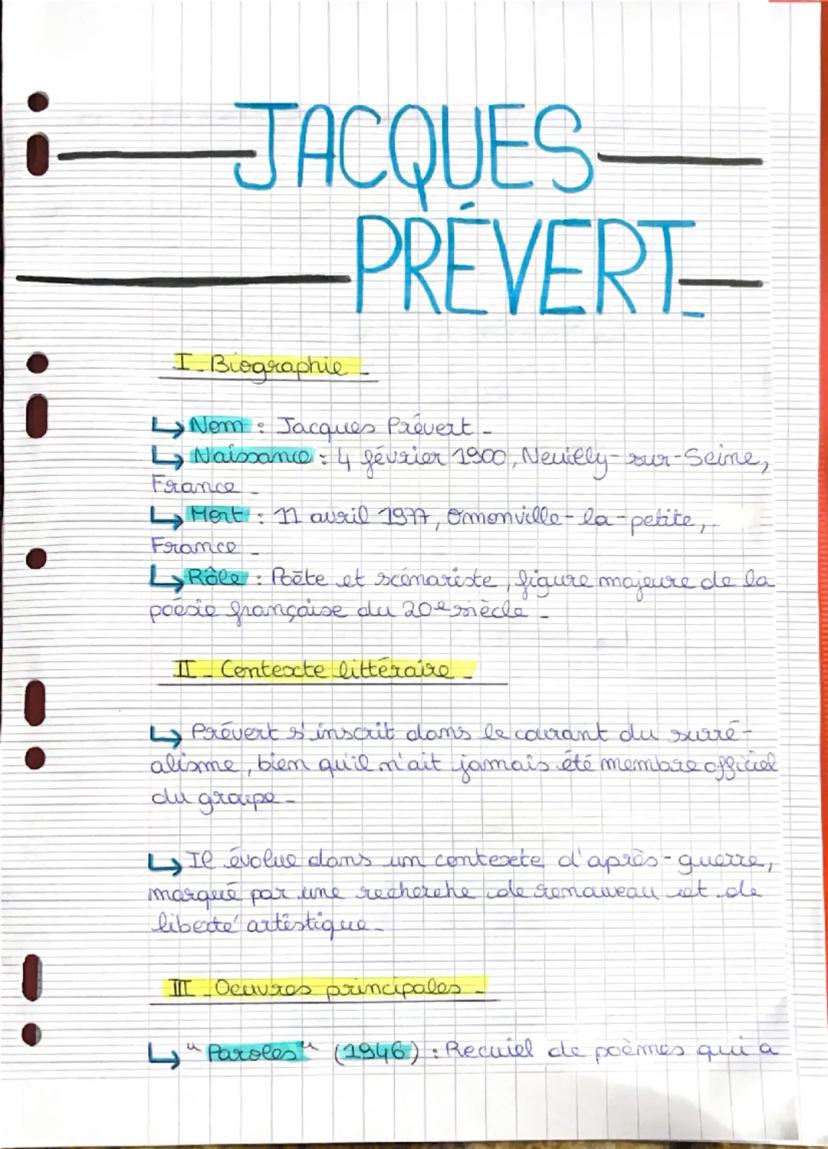 JACQUES
PRÉVERT_
I_Biographie_
↳ Nom : Jacques Prévert_
↳ Naissance : 4 février 1900, Neuilly-sur-Seine,
France_
↳ Mort : 11 avril 1977, Omonville-la-petite,
France_
↳ Rôle : Poète et scénariste, figure majeure de la
poésie française du 20e siècle_
II_ Contexte littéraire_
↳ Prévert s'inscrit dans le courant du surré-
alisme, bien qu'il n'ait jamais été membre officiel
du groupe_
↳ Il évolue dans un contexte d'après-guerre,
marqué par une recherche de renouveau et de
liberté artistique_
III_Oeuvres principales_
↳ "Paroles" (1946) : Recuiel de poèmes qui a